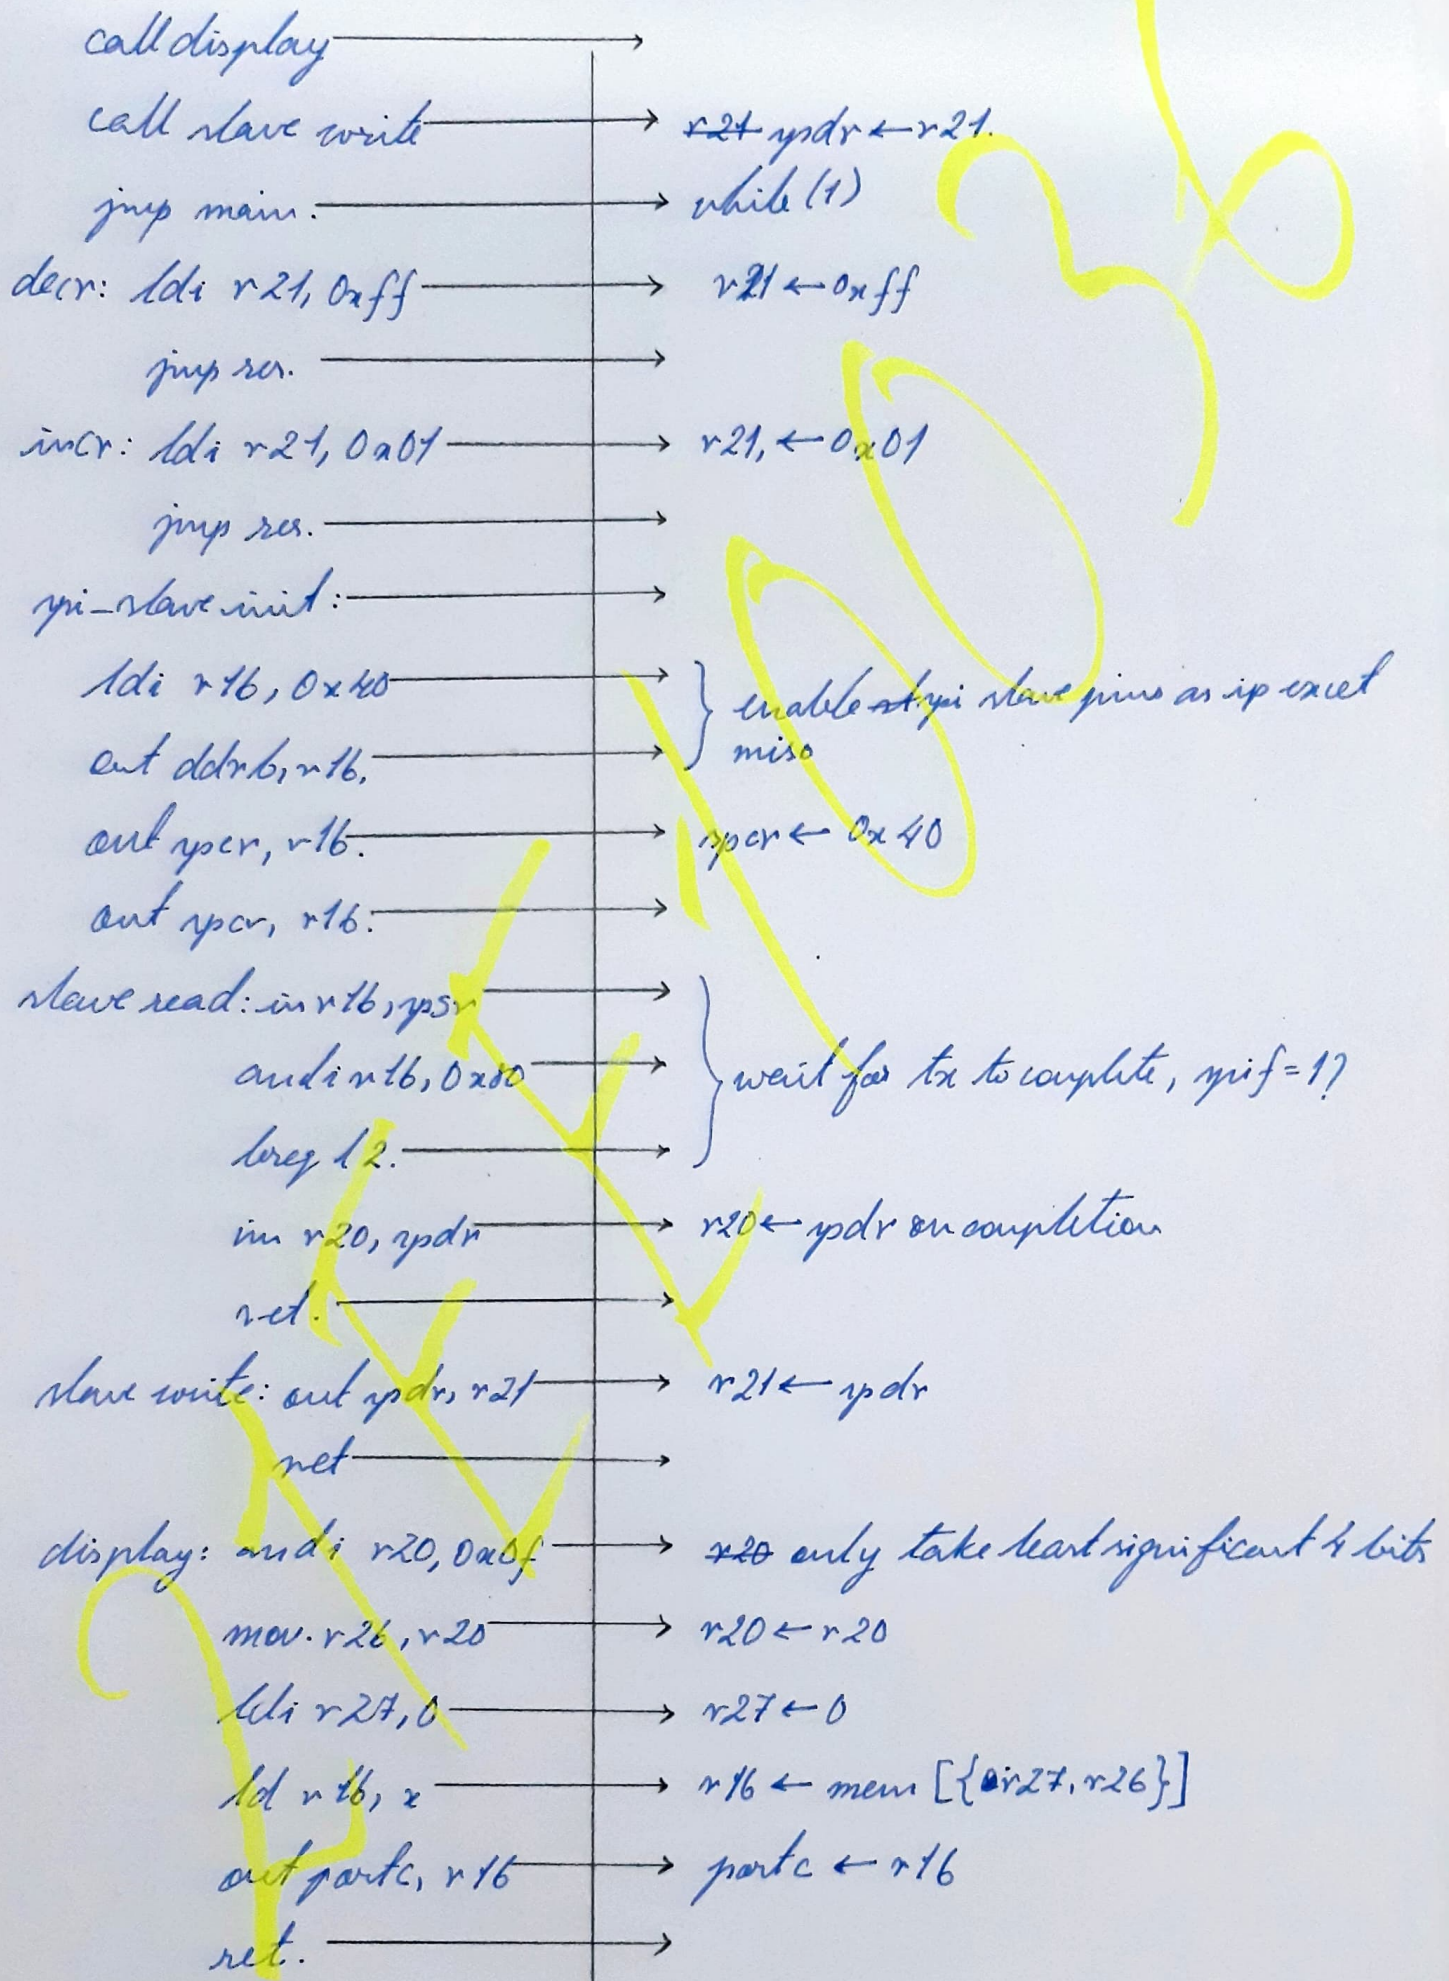 call display
call slave write r21 spdr ← r21.
jmp main. while (1)
decr: ldi r21, 0xff r21 ← 0xff
jmp res.
incr: ldi r21, 0x01 r21, ← 0x01
jmp res.
spi_slave init:
ldi r16, 0x40 enable st spi slave pins as ip excet
out ddrb, r16. miso
out spcr, r16. spcr ← 0x40
out spcr, r16.
slave read: in r16, spsr
andi r16, 0x80 wait for tx to complete, spif = 1?
breq l2.
in r20, spdr r20 ← spdr on completion
ret.
slave write: out spdr, r21 r21 ← spdr
ret
display: andi r20, 0x0f r20 only take least significant 4 bits
mov. r26, r20 r20 ← r20
ldi r27, 0 r27 ← 0
ld r16, x r16 ← mem [{r27, r26}]
out portc, r16 portc ← r16
ret.